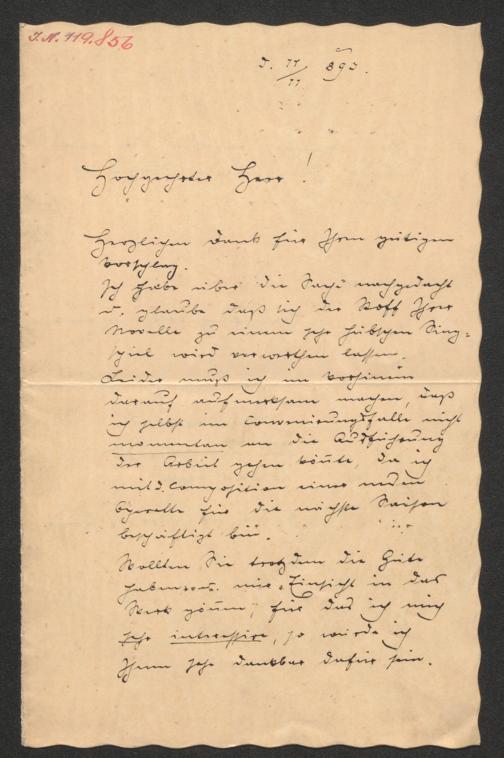 I.N. 119.856
11/11 893.
Hochgeehrter Herr!
Herzlichen Dank für Ihren gütigen
Vorschlag.
Ich habe über die Sache nachgedacht
u. glaube daß sich der Stoff Ihrer
Novelle zu einem sehr hübschen Sing-
spiel wird verwerthen lassen.
Leider muß ich im Vorhinein
darauf aufmerksam machen, daß
ich selbst im Convenirungsfalle nicht
momentan an die Ausführung
der Arbeit gehen könnte, da ich
mit d. Composition einer neuen
Operette für die nächste Saison
beschäftigt bin.
Wollten Sie trotzdem die Güte
haben mir Einsicht in das
Werk gönnen, für das ich mich
sehr interessire, so würde ich
Ihnen sehr dankbar dafür sein.